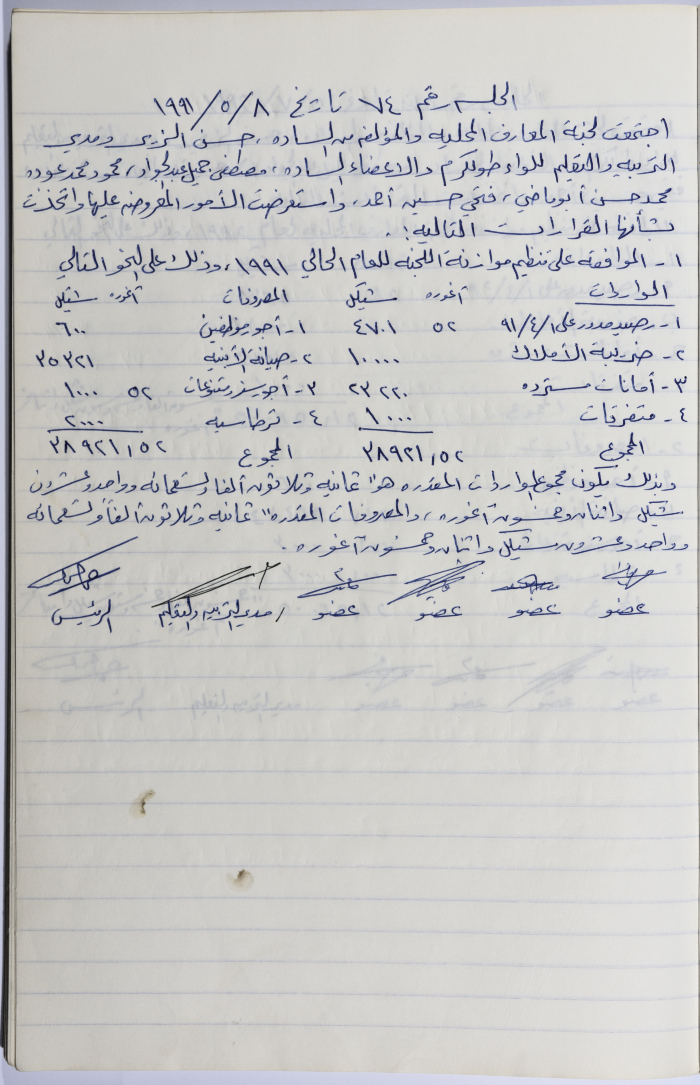 الجلسه رقم ٧٤ تاريخ ٨/٥/١٩٩١
اجتمعت لجنة المعارف المحليه والمؤلفه من الساده، حسن الزير ومدير
التربيه والتعليم للواء طولكرم والاعضاء الساده، مصطفى جميل عبدالجواد، محمود محمد عوده
محمد حسن أبو ماضي، فتحي حسين أحمد، واستعرضت الأمور المعروضه عليها واتخذت
بشأنها القرارات التاليه:
١- الموافقه على تنظيم موازنة اللجنه للعام الحالي ١٩٩١، وذلك على النحو التالي
الواردات آغوره شيكل المصروفات آغوره شيكل
١- رصيد مدور على ٩١/٤/١ ٥٢ ٤٧٠١ ١- أجور موظفين ٦٠٠
٢- ضريبة الأملاك ١٠٠٠٠ ٢- صيانة الأبنيه ٣٥٣٢١
٣- أمانات مسترده ٢٣٢٢٠ ٣- أجور سفر ومتنوعات ٥٢ ١٠٠٠
٤- متفرقات ١٠٠٠ ٤- قرطاسيه ٢٠٠٠
المجموع ٣٨٩٢١,٥٢ المجموع ٣٨٩٢١,٥٢
وبذلك يكون مجموع الواردات المقدره هو " ثمانيه وثلاثون ألفا وتسعمائه وواحد وعشرون
شيكل واثنان وخمسون آغوره، والمصروفات المقدره " ثمانيه وثلاثون ألفاً وتسعمائه
وواحد وعشرون شيكل واثنان وخمسون آغوره.
عضو عضو عضو عضو مدير التربيه والتعليم الرئيس